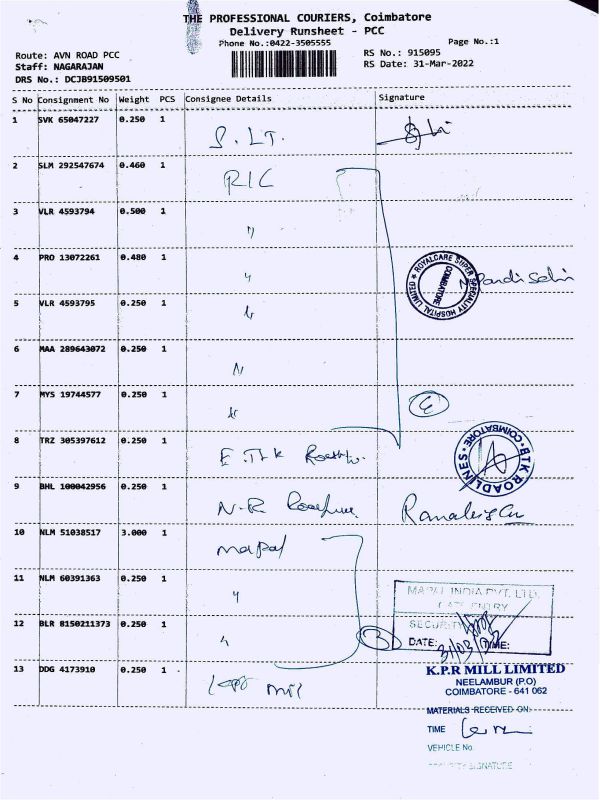 THE PROFESSIONAL COURIERS, Coimbatore
Delivery Runsheet - PCC
Phone No.:0422-3505555
Page No.:1
Route: AVN ROAD PCC
RS No.: 915095
Staff: NAGARAJAN
RS Date: 31-Mar-2022
DRS No.: DCJB91509501
S No Consignment No Weight PCS Consignee Details Signature
1 SVK 65047227 0.250 1 S. LT.
2 SLM 292547674 0.460 1 RIC
3 VLR 4593794 0.500 1 "
4 PRO 13072261 0.480 1 "
ROYALCARE SUPER SPECIALITY HOSPITAL LIMITED * COIMBATORE
5 VLR 4593795 0.250 1 "
6 MAA 289643072 0.250 1 "
7 MYS 19744577 0.250 1 "
8 TRZ 305397612 0.250 1
BTK ROADLINES * COIMBATORE
9 BHL 100042956 0.250 1 N.R
10 NLM 51038517 3.000 1 mapal
11 NLM 60391363 0.250 1 "
MAPAL INDIA PVT. LTD.
GATE ENTRY
12 BLR 8150211373 0.250 1 "
SECURITY
DATE: 31/03/22 TIME:
13 DDG 4173910 0.250 1 mill
K.P.R MILL LIMITED
NEELAMBUR (P.O)
COIMBATORE - 641 062
MATERIALS RECEIVED ON
TIME
VEHICLE No.
SECURITY SIGNATURE